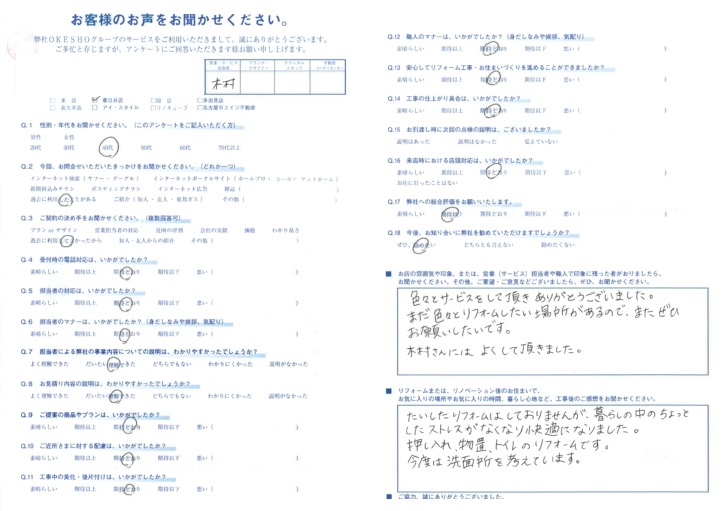 お客様のお声をお聞かせください。
弊社OKESHOグループのサービスをご利用いただきまして、誠にありがとうございます。
ご多忙と存じますが、アンケートにご回答いただきます様お願い申し上げます。
営業・サービス
担当者
プランナー
デザイナー
テクニカル
スタッフ
不動産
木村
本店 春日井店 多治見店
アイ・スタイル リノキューブ 名古屋ホエイジン不動産
Q.1 性別・年代をお聞かせください。(このアンケートをご記入いただく方)
男性 女性
20代 30代 40代 50代 60代 70代以上
Q.2 今回、お問合せいただいたきっかけをお聞かせください。(どれか一つ)
インターネット検索(ヤフー・グーグル) インターネットポータルサイト(ホームプロ・
新聞折込みチラシ ポスティングチラシ インターネット広告 雑誌( )
過去に利用したことがある ご紹介(知人・友人・東邦ガス) その他( )
Q.3 ご契約の決め手をお聞かせください。(複数回答可)
プラン or デザイン 営業担当者の対応 近所の評判 会社の実績 価格 わかり易さ
過去に利用してよかったから 知人・友人からの紹介 その他( )
Q.4 受付時の電話対応は、いかがでしたか?
素晴らしい 期待以上 期待どおり 期待以下 悪い( )
Q.5 担当者の対応は、いかがでしたか?
素晴らしい 期待以上 期待どおり 期待以下 悪い( )
Q.6 担当者のマナーは、いかがでしたか?(身だしなみや挨拶、気配り)
素晴らしい 期待以上 期待どおり 期待以下 悪い( )
Q.7 担当者による弊社の事業内容についての説明は、わかりやすかったでしょうか?
よく理解できた だいたい理解できた どちらでもない わかりにくかった 説明がなかった
Q.8 お見積り内容の説明は、わかりやすかったでしょうか?
よく理解できた だいたい理解できた どちらでもない わかりにくかった 説明がなかった
Q.9 ご提案の商品やプランは、いかがでしたか?
素晴らしい 期待以上 期待どおり 期待以下 悪い( )
Q.10 ご近所さまに対する配慮は、いかがでしたか?
素晴らしい 期待以上 期待どおり 期待以下 悪い( )
Q.11 工事中の美化・後片付けは、いかがでしたか?
素晴らしい 期待以上 期待どおり 期待以下 悪い( )
Q.12 職人のマナーは、いかがでしたか?(身だしなみや挨拶、気配り)
素晴らしい 期待以上 期待どおり 期待以下 悪い( )
Q.13 安心してリフォーム工事・お住まいづくりを進めることができましたか?
素晴らしい 期待以上 期待どおり 期待以下 悪い( )
Q.14 工事の仕上がり具合は、いかがでしたか?
素晴らしい 期待以上 期待どおり 期待以下 悪い( )
Q.15 お引渡し時に次回の点検の説明は、ございましたか?
説明はあった 説明はなかった 覚えていない
Q.16 来店時における店頭対応は、いかがでしたか?
素晴らしい 期待以上 期待どおり 期待以下 悪い( )
お店に行ったことはない
Q.17 弊社への総合評価をお願いいたします。
素晴らしい 期待以上 期待どおり 期待以下 悪い( )
Q.18 今後、お知り合いに弊社を勧めていただけますでしょうか?
ぜひ、勧めたい どちらとも言えない 勧めたくない
■ お店の雰囲気や印象、または、営業(サービス)担当者や職人で印象に残った者がおりましたら、
お聞かせください。その他、ご要望・ご意見などございましたら、ぜひ、お聞かせください。
色々とサービスをして頂き ありがとうございました。
まだ色々とリフォームしたい場所があるので、またぜひ
お願いしたいです。
木村さんには よくして頂きました。
■ リフォームまたは、リノベーション後のお住まいで、
お気に入りの場所やお気に入りの時間、暮らし心地など、工事後のご感想をお聞かせください。
たいしたリフォームはしておりませんが、暮らしの中のちょっと
したストレスがなくなり快適になりました。
押し入れ、物置、トイレのリフォームです。
今度は洗面所を考えています。
■ ご協力、誠にありがとうございました。